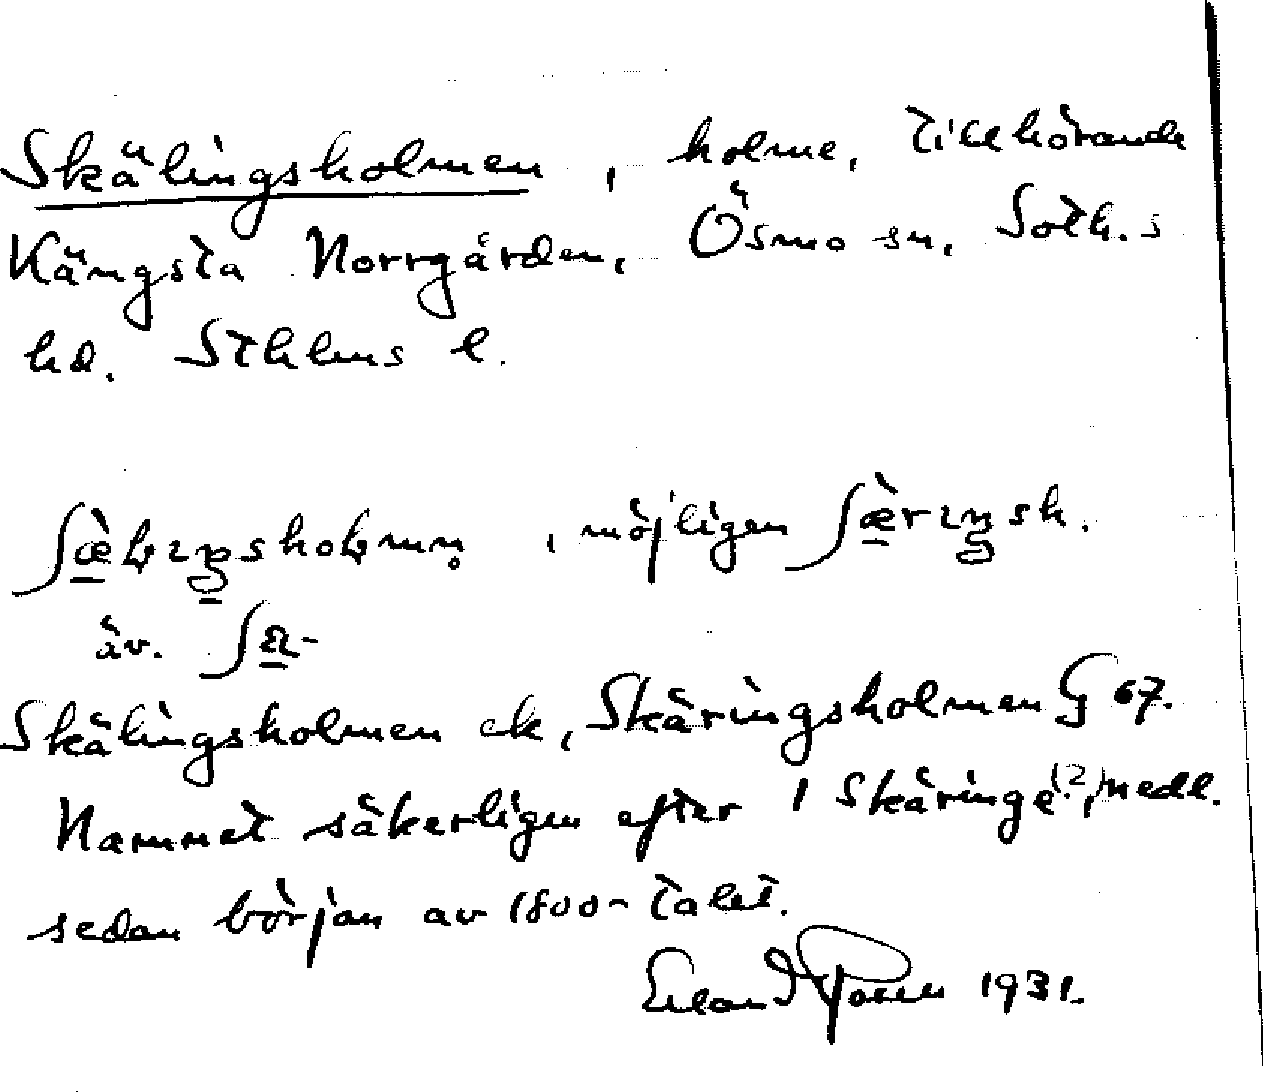 Skälingsholmen, holme, tillhörande
Kängsta Norrgården, Ösmo sn, Soth.s
hd. Sthlms l.
, möjligen
äv.
Skälingsholmen ek, Skäringsholmen G 67.
Namnet säkerligen efter 1 Skäringe(?), nedl.
sedan början av 1800-talet.
Erland 1931.